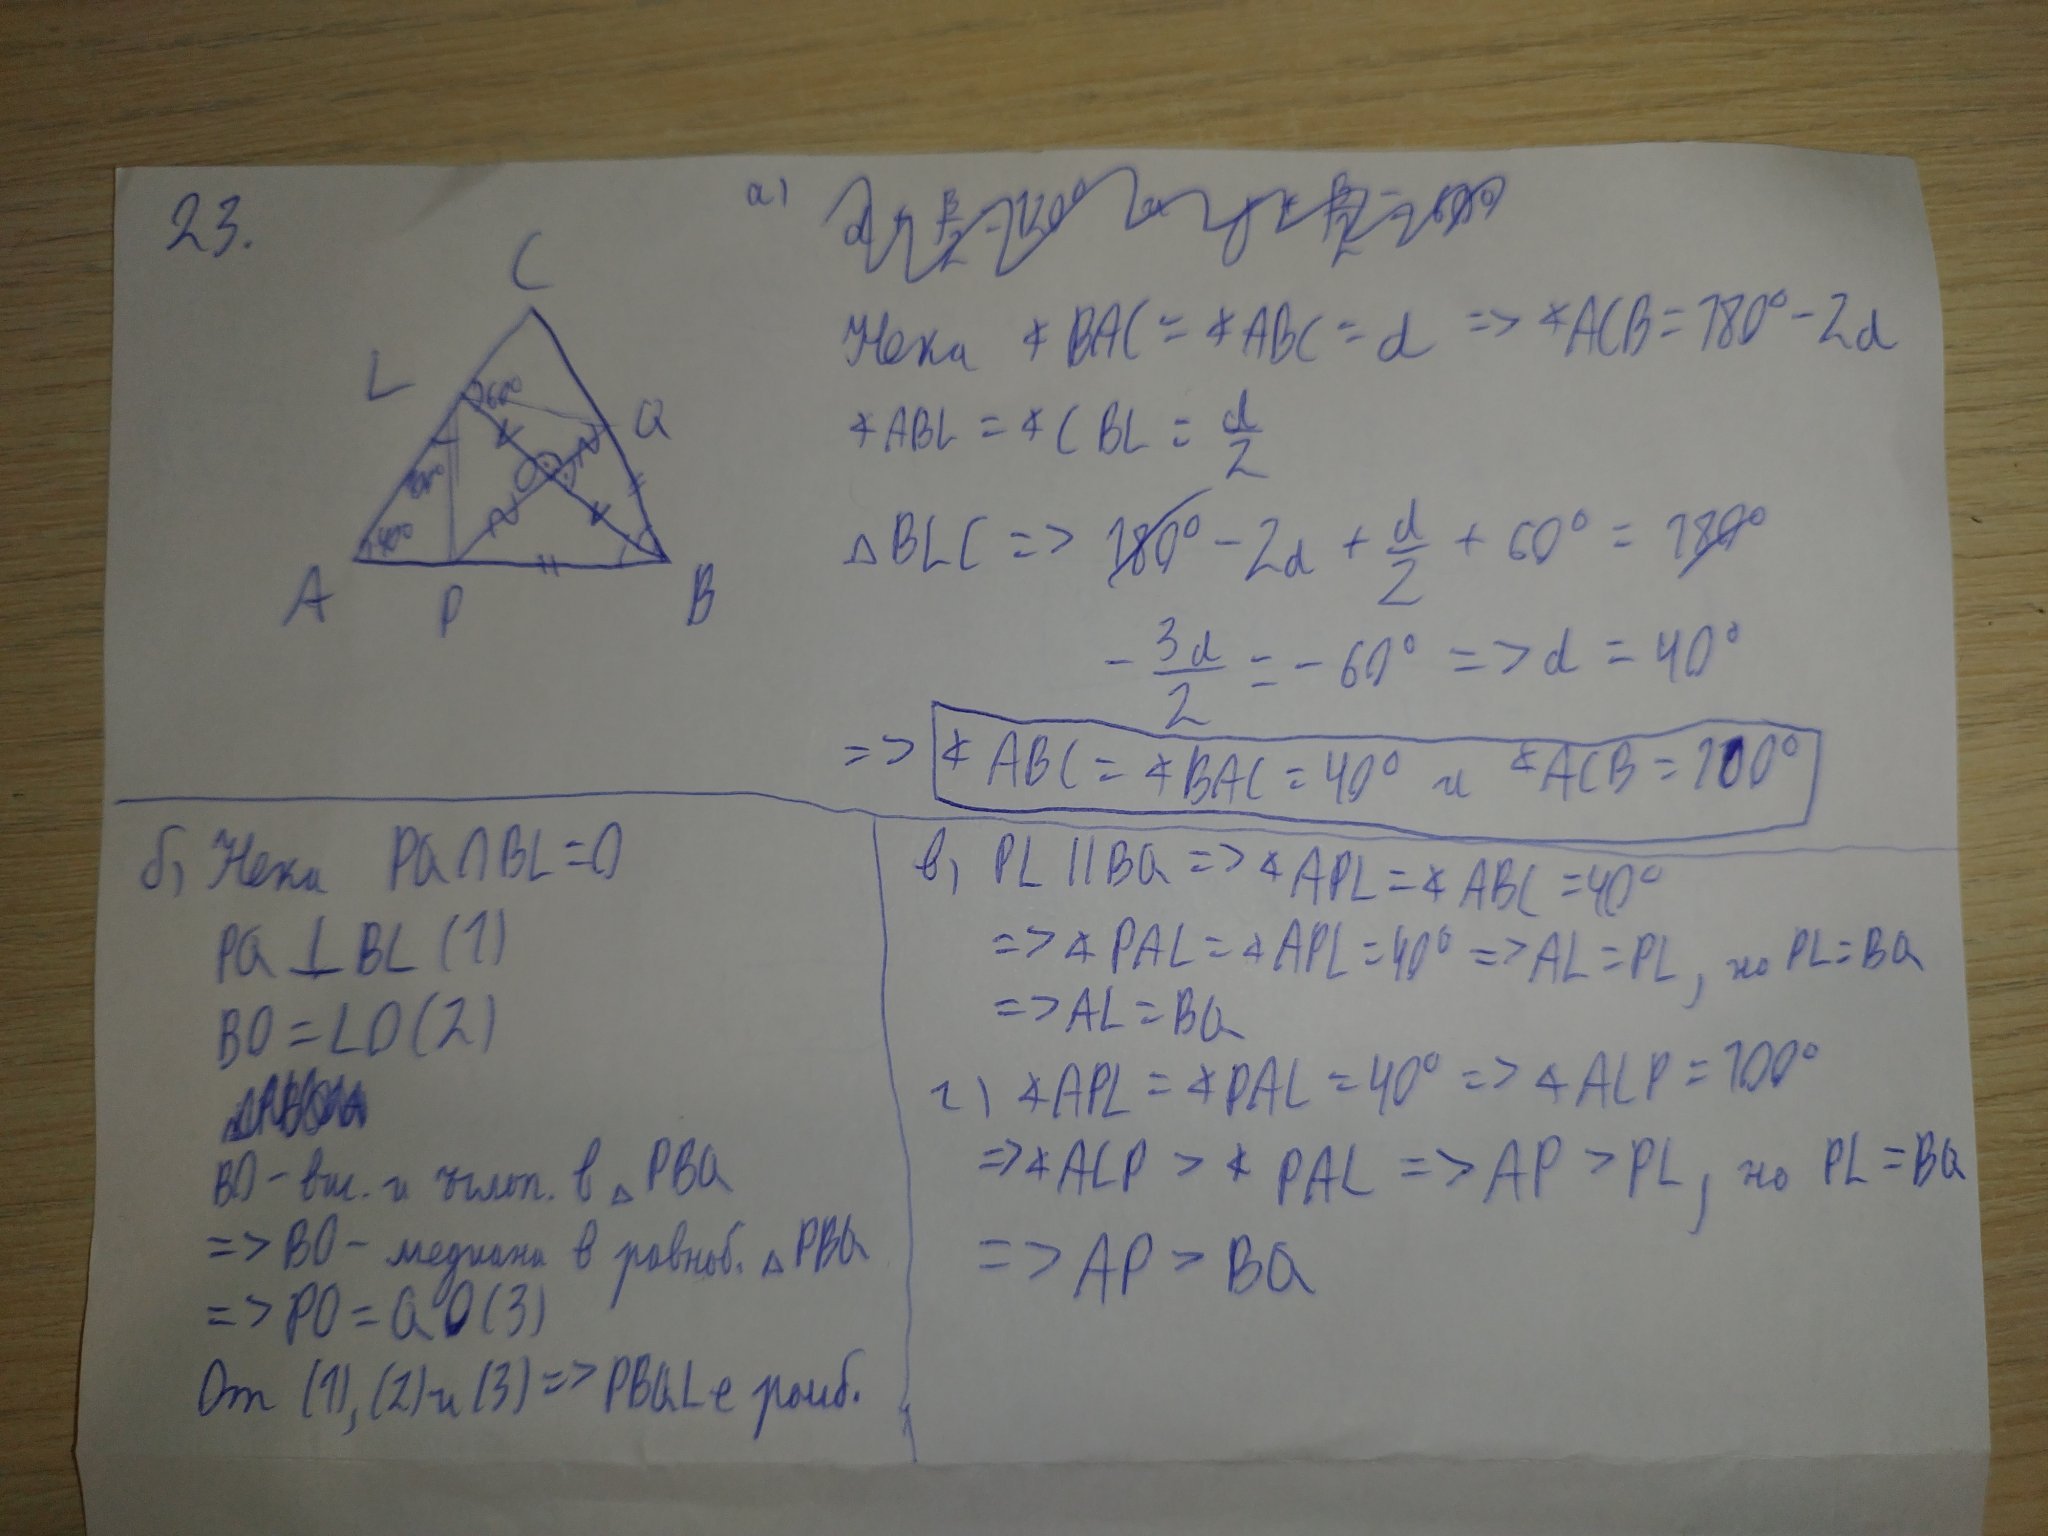 23.
C
L
60°
Q
O
40°
A
P
B
а)
Нека ∢BAC = ∢ABC = α => ∢ACB = 180° - 2α
∢ABL = ∢CBL = α/2
△BLC => 180° - 2α + α/2 + 60° = 180°
- 3α/2 = - 60° => α = 40°
=> ∢ABC = ∢BAC = 40° и ∢ACB = 100°
б) Нека PQ ∩ BL = O
PQ ⊥ BL (1)
BO = LO (2)
BO - вис. и ъглоп. в △PBQ
=> BO - медиана в равноб. △PBQ
=> PO = QO (3)
От (1), (2) и (3) => PBQL е ромб.
в) PL || BQ => ∢APL = ∢ABC = 40°
=> ∢PAL = ∢APL = 40° => AL = PL, но PL = BQ
=> AL = BQ
г) ∢APL = ∢PAL = 40° => ∢ALP = 100°
=> ∢ALP > ∢PAL => AP > PL, но PL = BQ
=> AP > BQ